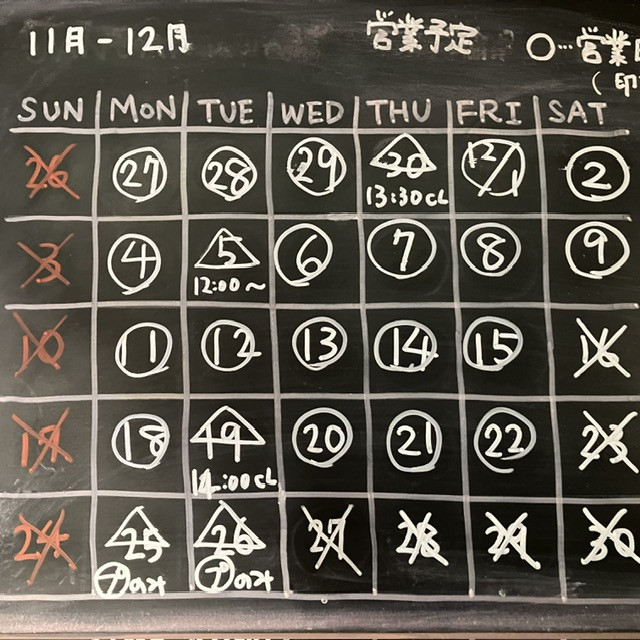 11月-12月 営業予定 ○…営業日
(印
SUN MON TUE WED THU FRI SAT
26 27 28 29 30 12/1 2
13:30CL
3 4 5 6 7 8 9
12:00~
10 11 12 13 14 15 16
17 18 19 20 21 22 23
14:00CL
24 25 26 27 28 29 30
㋐のみ ㋐のみ